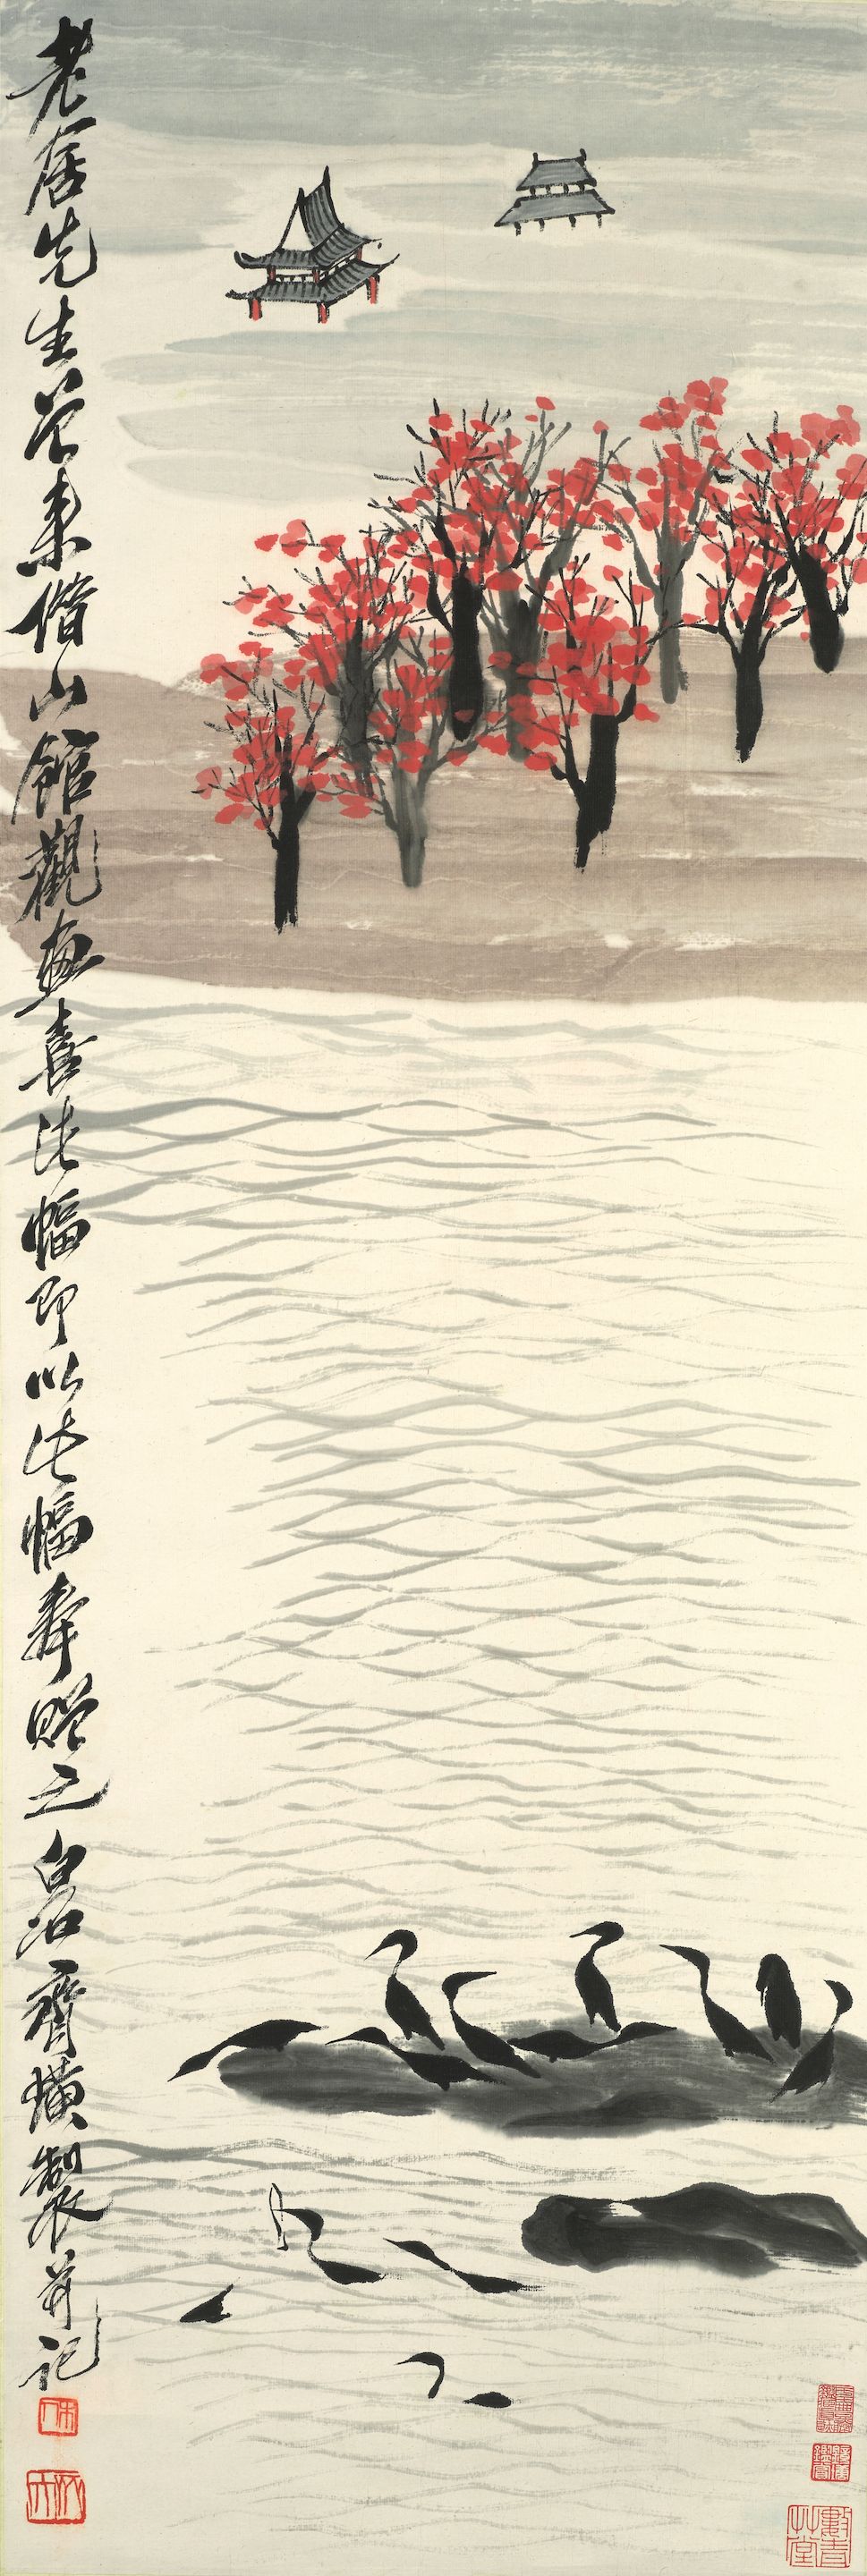 老居先生曾来借山館觀画喜此幅即以此幅壽贈之白石齊璜製并記
木人